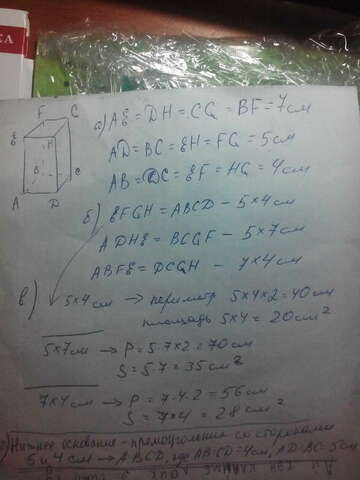 F C
E H
B C
A D
а) AE = DH = CG = BF = 7 см
AD = BC = EH = FG = 5 см
AB = DC = EF = HG = 4 см
б) EFGH = ABCD – 5×4 см
ADHE = BCGF – 5×7 см
ABFE = DCGH – 7×4 см
в) 5×4 см → периметр 5×4×2 = 40 см
площадь 5×4 = 20 см²
5×7 см → P = 5·7×2 = 70 см
S = 5·7 = 35 см²
7×4 см → P = 7·4·2 = 56 см
S = 7×4 = 28 см²
Нижнее основание - прямоугольник со сторонами
5 и 4 см → ABCD, где AB=CD=4см, AD=BC=5см